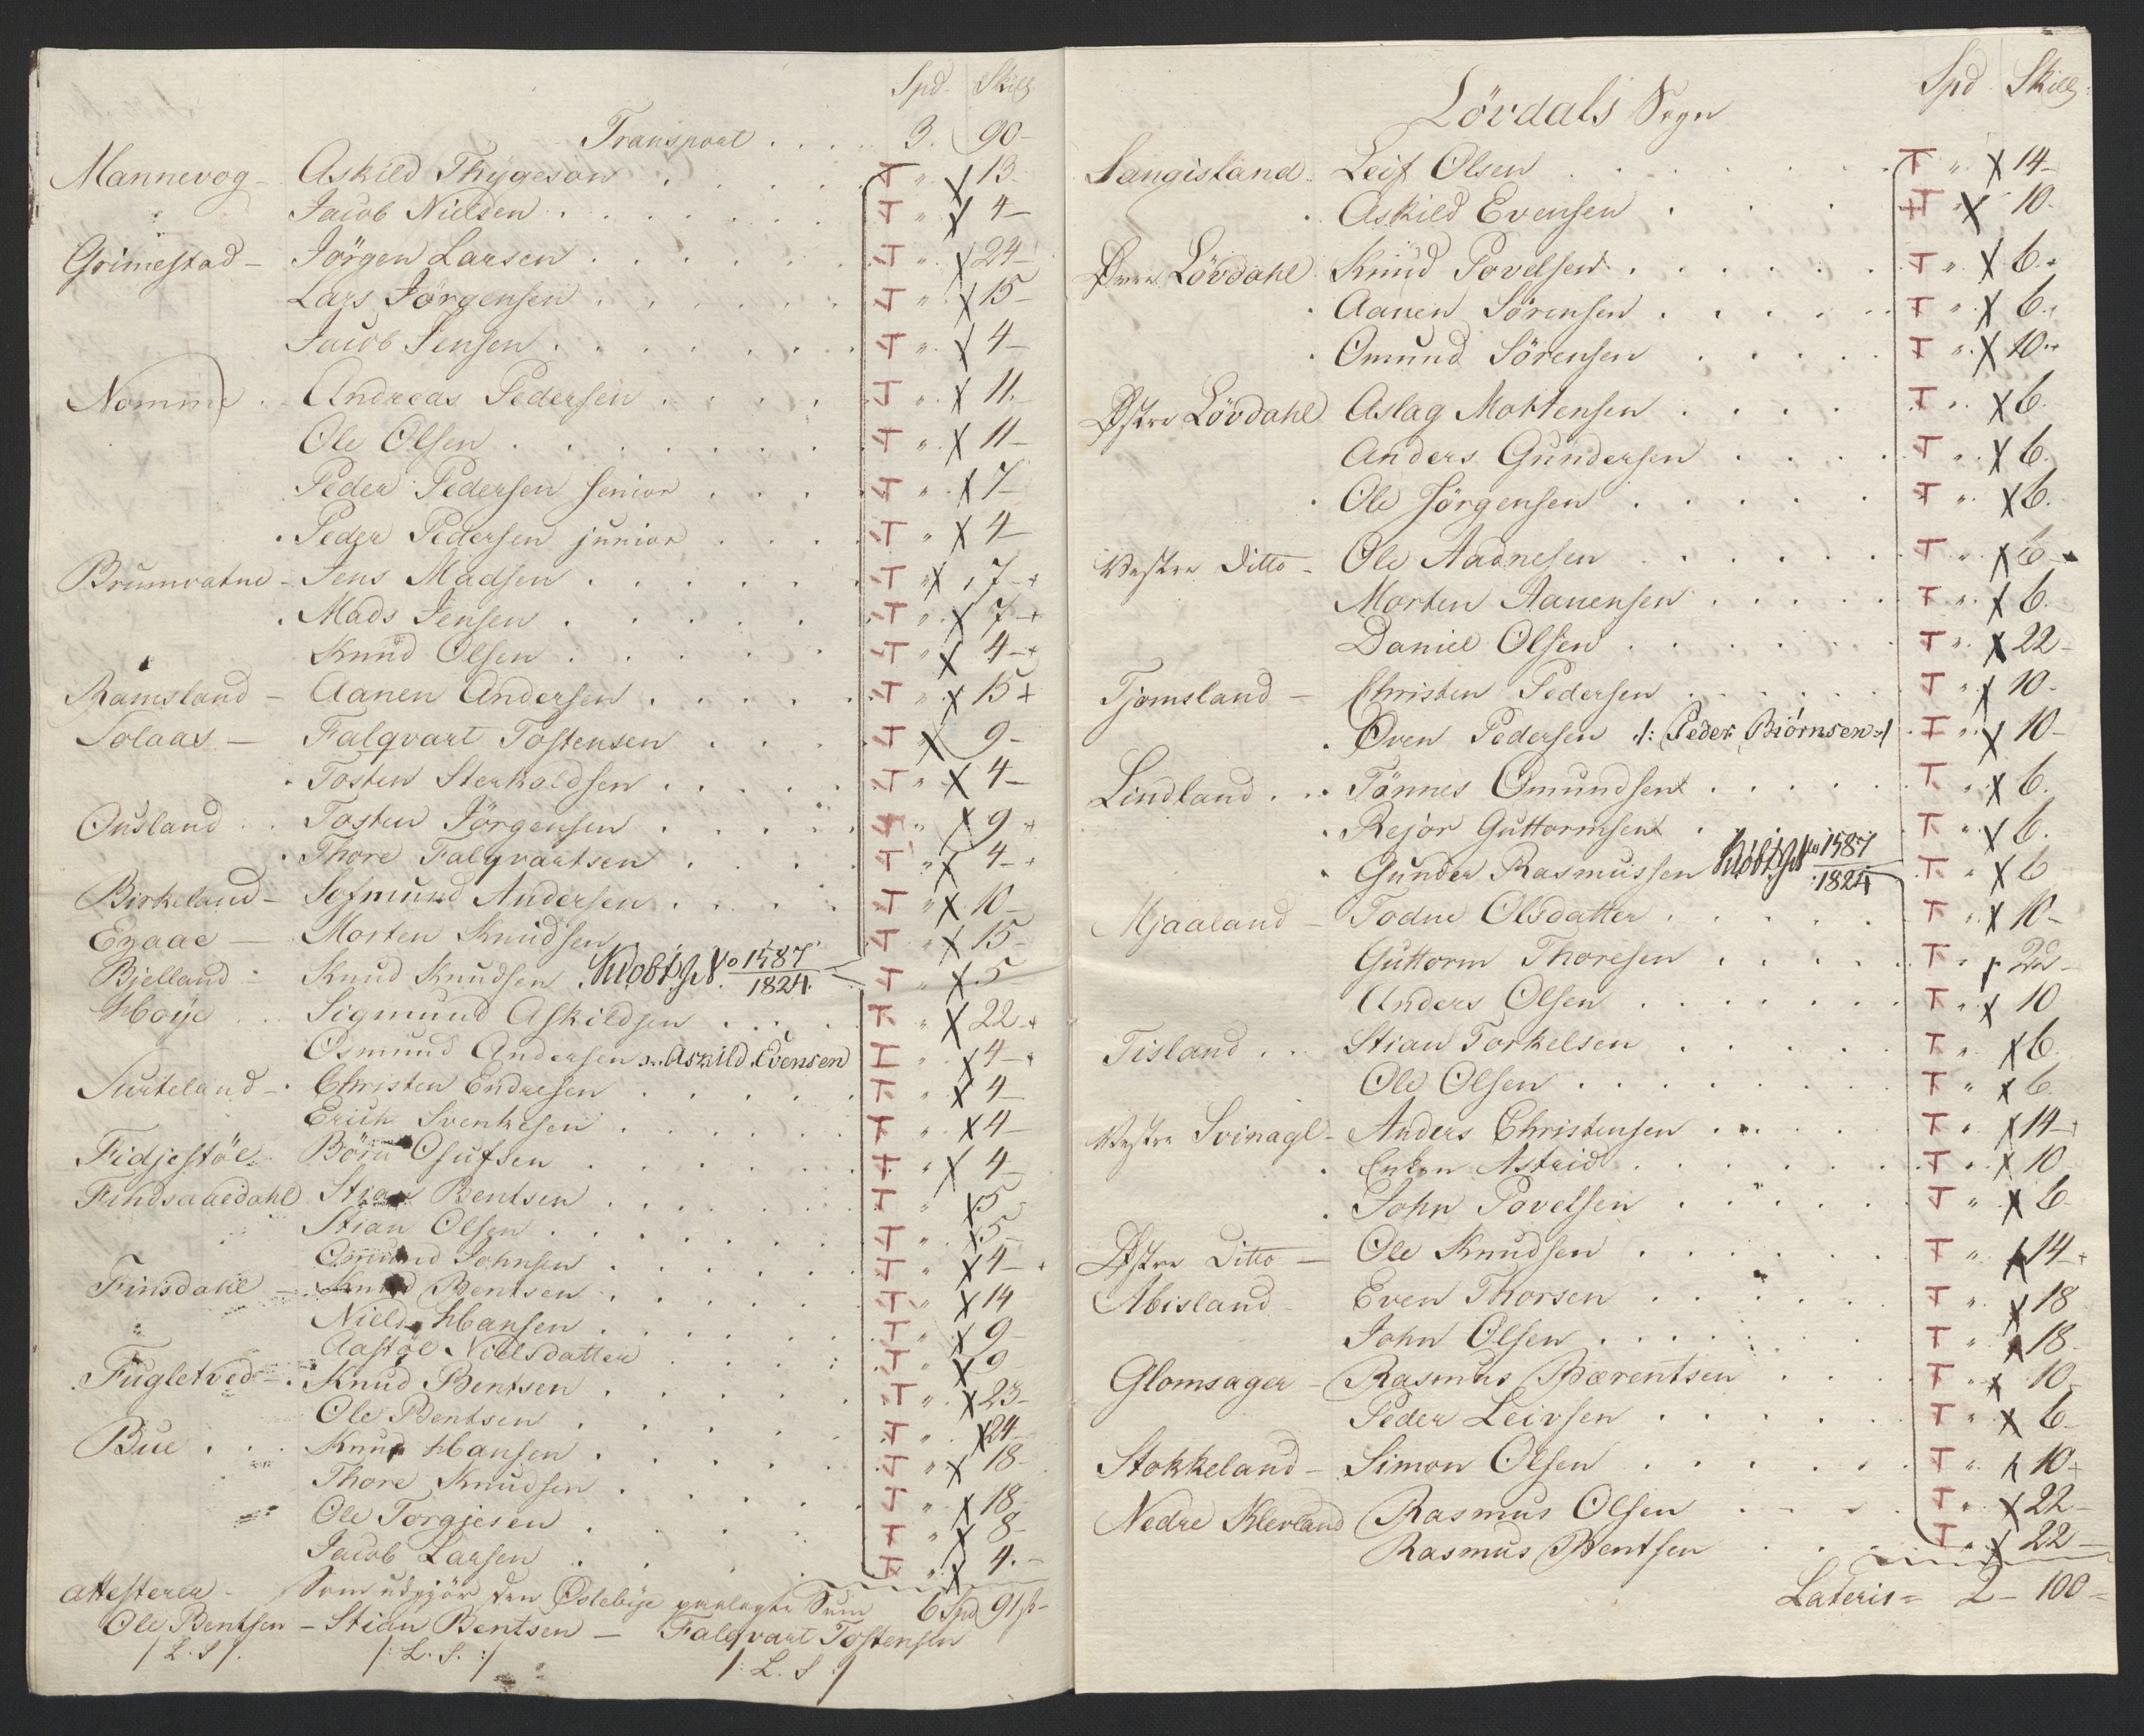 Spd. Skill
Transport . . . . 3. 90-
Mannevog - Askild Thygeson . . . . T " X 13-
Jacob Nielsen . . . . T " X 4-
Grimestad - Jörgen Larsen . . . . T " X 24-
Lars Jörgensen . . . . T " X 15-
Jacob Jensen . . . . T " X 4-
Nomme . Andreas Pedersen . . . . T " X 11.
Ole Olsen . . . . T " X 11-
Peder Pedersen senior . . . . T " X 7-
Peder Pedersen junior . . . . T " X 4-
Brumvatne - Jens Madsen . . . . T " X 7-+
Mads Jensen . . . . T " X 7-+
Knud Olsen . . . . T " X 4-+
Ramsland - Aanen Andersen . . . . T " X 15+
Solaas - Falqvart Tostensen . . . . T " X 9-
Tosten Sterkoldsen . . . . T " X 4-
Ousland . . Tosten Jörgensen . . . . T " X 9+
Thore Falqvartsen . . . . T " X 4-+
Birkeland - Sofmund Andersen . . . . T " X 10-
Egaae - Morten Knudsen T " X 15-
Bjelland - Knud Knudsen . Kiøbt J No 1587/1824. T " X 5
Høye . . Sigmund Askildsen . . . . T " X 22-+
Osmund Andersen Askild Evensen T " X 4-+
Surteland - Christen Endresen . . . . T " X 4
Erich Svenkesen . . . . T " X 4-
Fidjestöl - Börn Osufsen . . . . T " X 4
Findsaaedahl Stian Bentsen . . . . T " X 5
Stian Olsen . . . . T " X 5-
Omund Johnsen . . . . T " X 4-
Finsdahl - Knud Bentsen . . . . T " X 14
Niels Hansen . . . . T " X 9-
Aastöl Nielsdatter . . . . T " X 9
Fugletved - Knud Bentsen . . . . T " X 23-
Ole Bentsen . . . . T " X 24-
Bue . . . Knud Hansen . . . . T " X 18-
Thore Knudsen . . . . T " X 18-
Ole Torgjesen . . . . T " X 8-
Jacob Larsen . . . . T " X 4.-
Som udgjör den Øslebye paalagte Sum 6 Spd 91 ß-
attesterer -
Ole Bentsen - Stian Bentsen - Falqvart Tostensen
/ L. S /. /: L. S. :/ /: L. S :/
Spd Skill
Lövdals Sogn
Langisland . Leif Olsen . . . . T " X 14-
. Askild Evensen . . . . T " X 10.
Øvre Lövdahl Knud Povelsen . . . . T " X 6.
. Aanen Sörensen . . . . T " X 6.
. Omund Sörensen . . . . T " X 10-
Østre Lövdahl Aslag Mortensen . . . . T " X 6.
Anders Gundersen . . . . T " X 6.
. Ole Jörgensen . . . . T " X 6.
Vestre Ditto - Ole Aadnesen . . . . T " X 6
Morten Aanensen . . . . T " X 6.
Daniel Olsen . . . . T " X 22-
Tjomsland - Christen Pedersen . . . . T " X 10-
. Øven Pedersen /: Peder Biörnsen :/ T " X 10-
Lindland . . . Tönnes Omundsen . . . . T " X 6.
. Rejor Guttormsen . T " X 6.
. Gunder Rasmussen Kiøbt J No 1587/1824 T " X 6
Mjaaland - Todne Olsdatter . . . . T " X 10-
Guttorm Thoresen . . . . T " 22-
Anders Olsen . . . . T " X 10
Tisland . . Stian Torkelsen . . . . T " X 6.
Ole Olsen . . . . T " X 6.
Vestre Svinagl - Anders Christensen . . . . T " X 14-+
. Enken Astrid . . . . T " X 10
. John Povelsen . . . . T " X 6
Østre Ditto - Ole Knudsen . . . . T " X 14-+
Abisland - Even Thorsen . . . . T " X 18
John Olsen . . . . T " X 18.
Glomsager - Rasmus Bærentsen . . . . T " X 10
Peder Leivsen . . . . T " X 6-
Stokkeland - Simon Olsen . . . . T " X 10+
Nedre Klevland Rasmus Olsen . . . . T " X 22-
Rasmus Bentsen . . . . T " X 22-
Lateris = 2 - 100 =